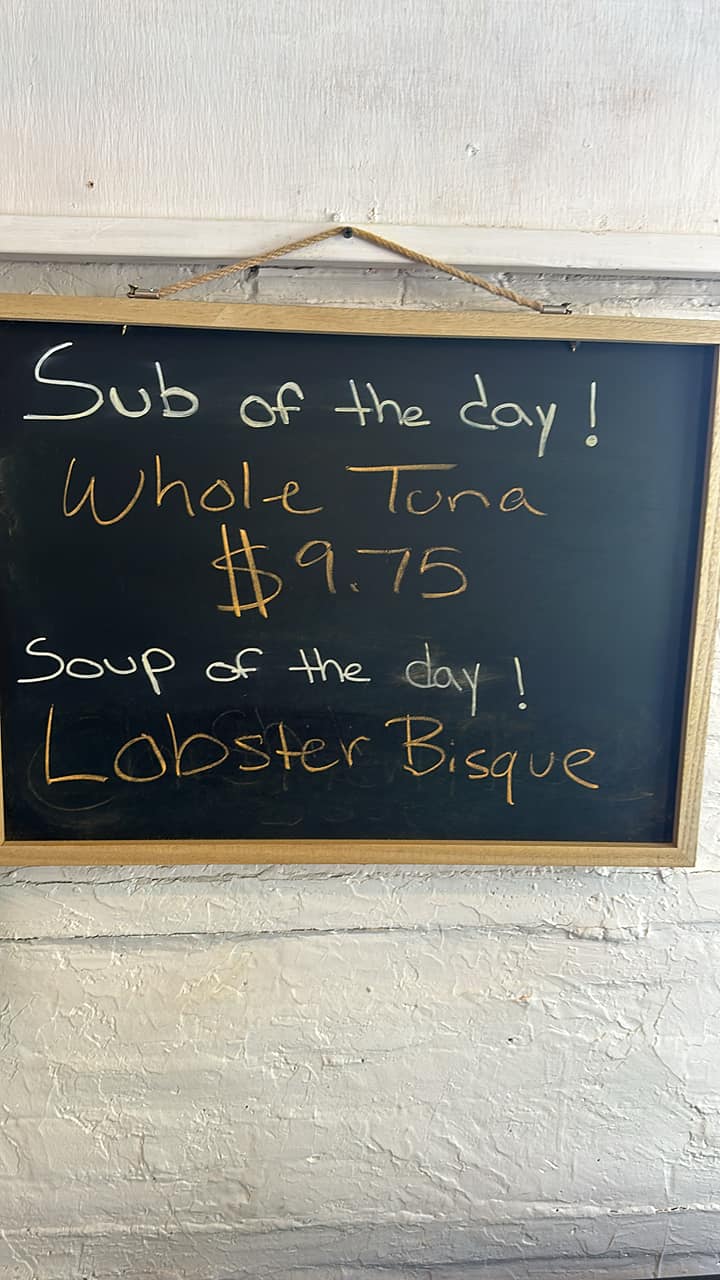 Sub of the day!
Whole Tuna
$9.75
Soup of the day!
Lobster Bisque